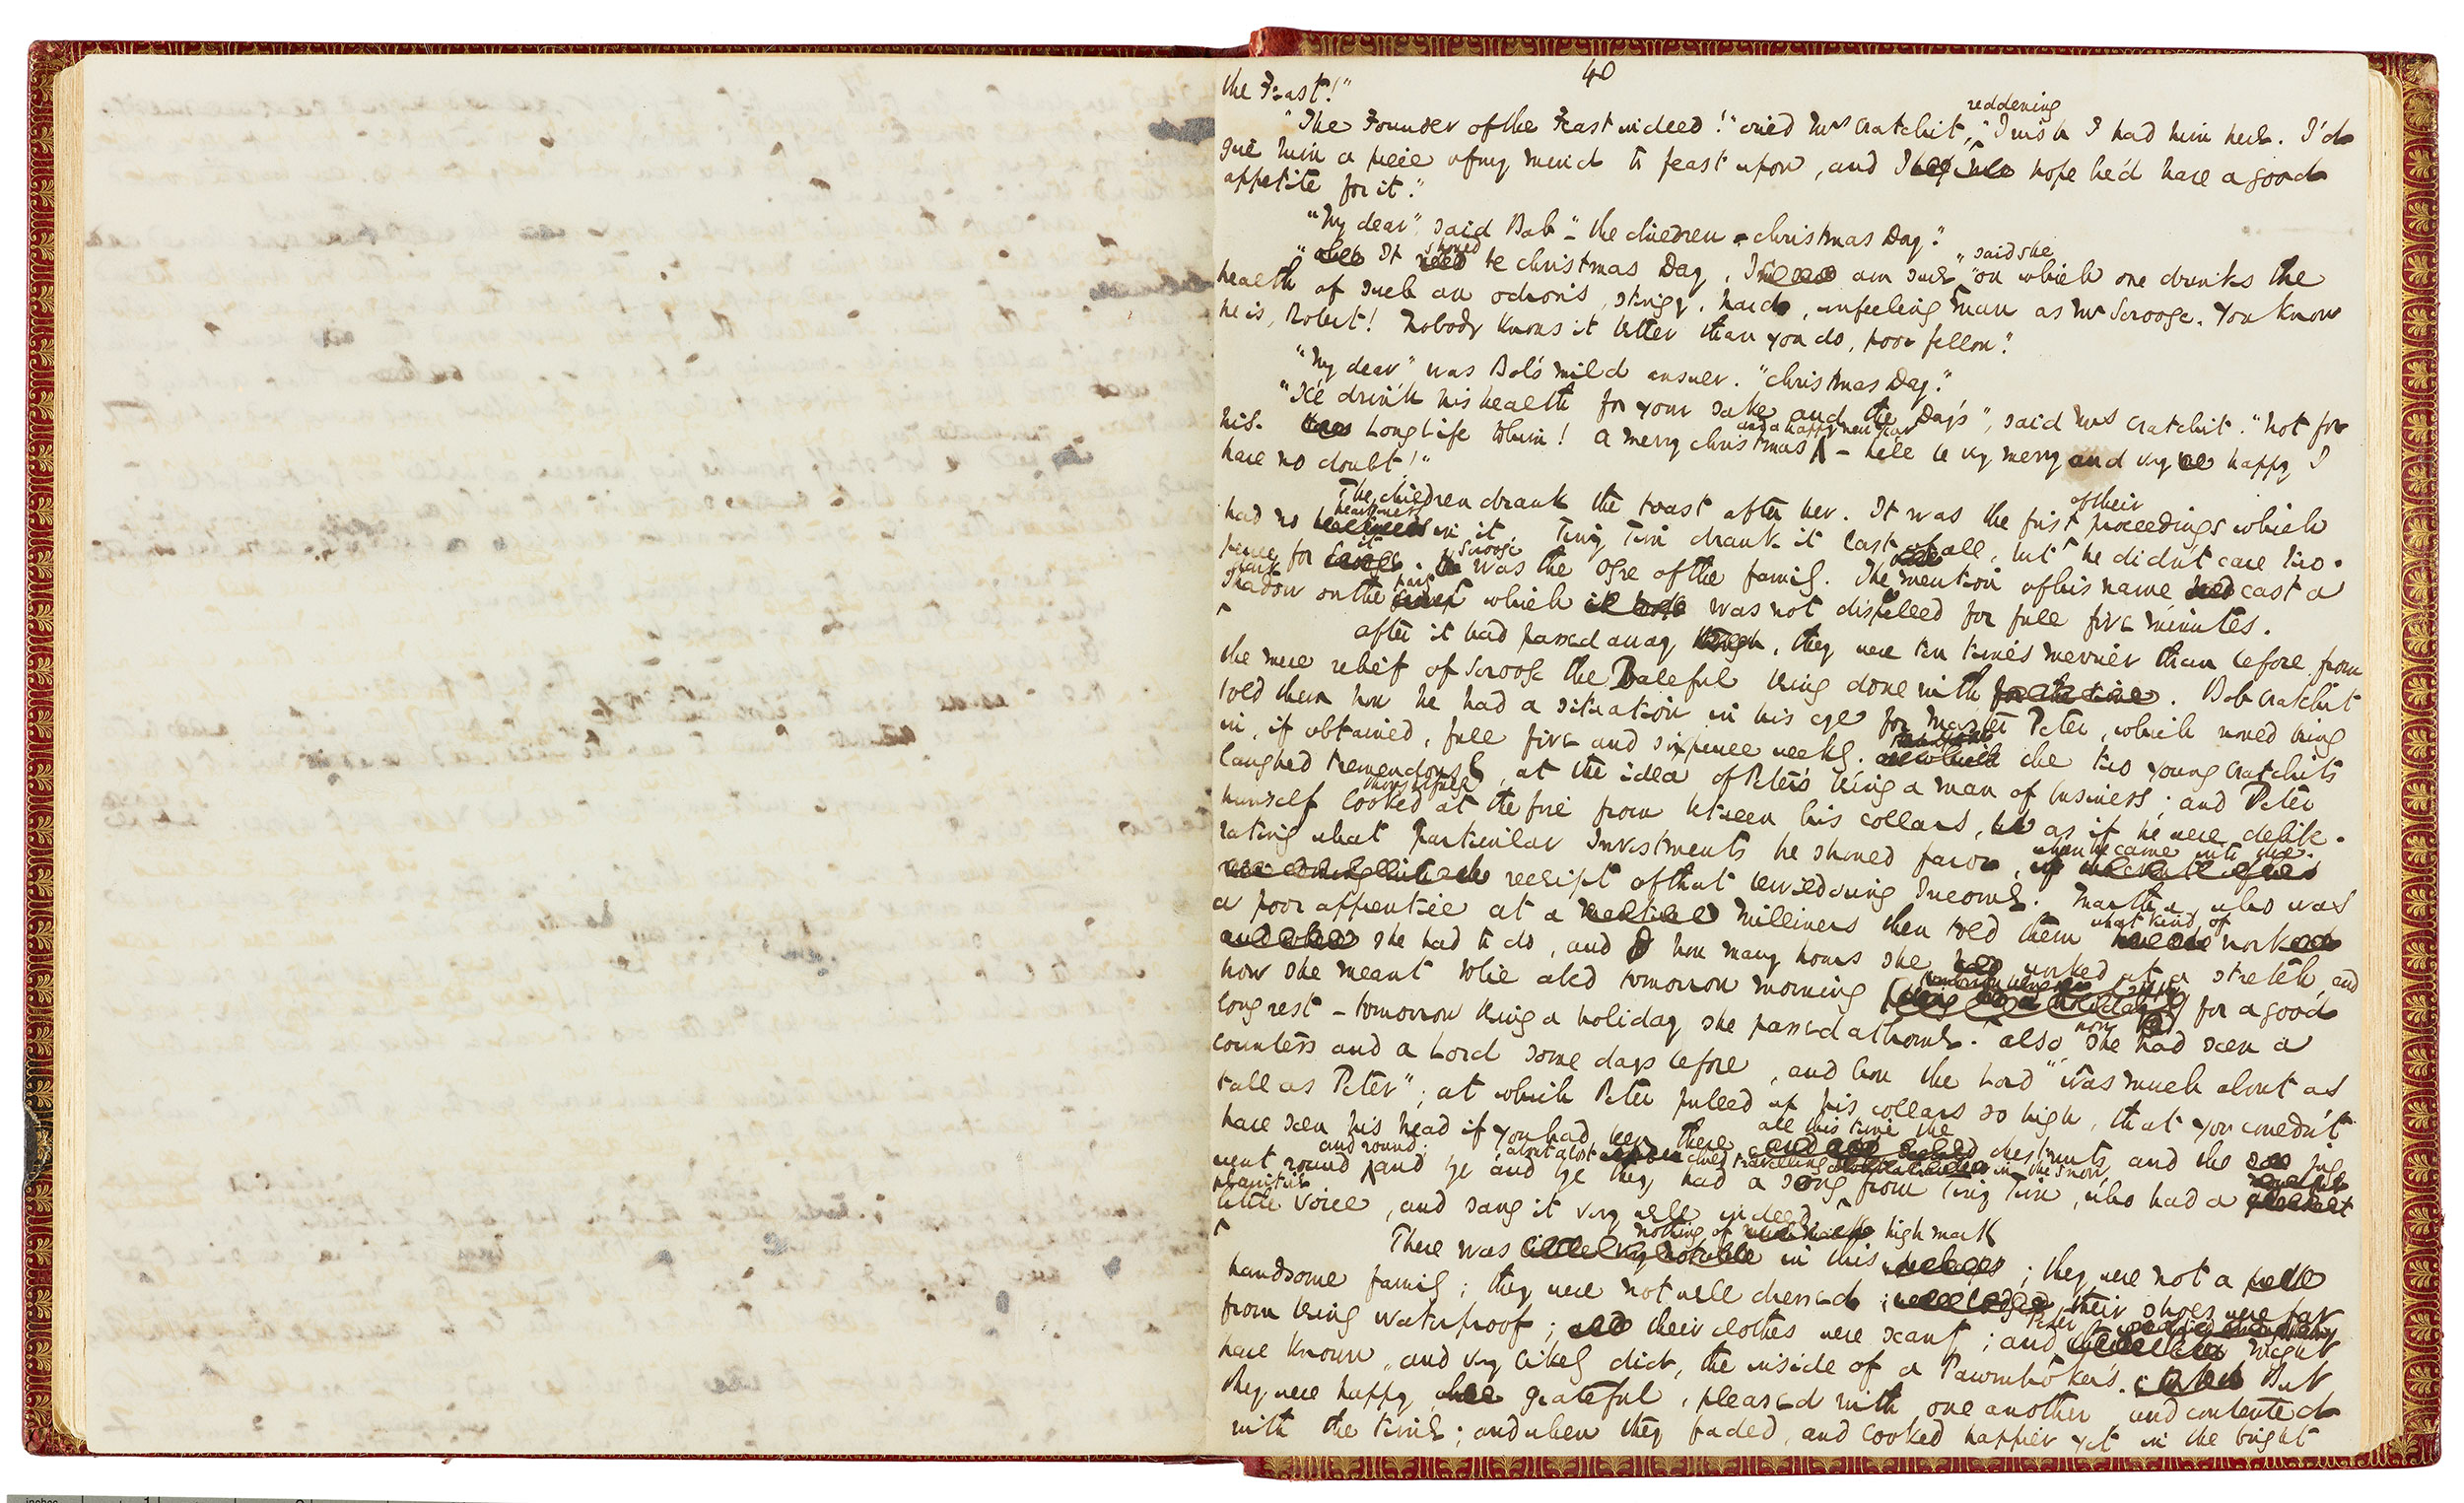 40
the Feast!"
"The Founder of the Feast indeed!" cried Mrs Cratchit, reddening "I wish I had him here. I'd
give him a piece of my mind to feast upon, and I hope he'd have a good
appetite for it."
"My dear" said Bob – "the children – Christmas Day."
"It should be Christmas Day, I am sure" said she "on which one drinks the
health of such an odious, stingy, hard, unfeeling man as Mr Scrooge. You know
he is, Robert! Nobody knows it better than you do, poor fellow."
"My dear" was Bob's mild answer. "Christmas Day."
"I'll drink his health for your sake and the Day's", said Mrs Cratchit. "Not for
his. Long Life to him! A merry Christmas and a happy new year – he'll be very merry and very happy I
have no doubt!"
The children drank the toast after her. It was the first of their proceedings which
had no heartiness in it. Tiny Tim drank it last of all, but he didn't care two-
pence for it. Scrooge was the Ogre of the family. The mention of his name cast a
dark shadow on the party which was not dispelled for full five minutes.
After it had passed away, they were ten times merrier than before from
the mere relief of Scrooge the Baleful being done with. Bob Cratchit
told them how he had a situation in his eye for Master Peter, which would bring
in, if obtained, full five and sixpence weekly. The two young Cratchits
laughed tremendously, at the idea of Peter's being a man of business; and Peter
himself looked thoughtfully at the fire from between his collars, as if he were delibe-
rating what particular Investments he should favor, when he came into the
receipt of that bewildering Income. Martha, who was
a poor apprentice at a milliners then told them what kind of work
she had to do, and how many hours she worked at a stretch, and
how she meant to lie abed tomorrow morning for a good
long rest – tomorrow being a holiday she passed at home. Also how she had seen a
countess and a Lord some days before, and how the Lord "was much about as
tall as Peter"; at which Peter pulled up his collars so high, that you couldn't
have seen his head if you had been there. All this time the chestnuts and the jug
went round and round; and bye and bye they had a song about a lost child travelling in the snow from Tiny Tim, who had a
plaintive little voice, and sang it very well indeed.
There was nothing of high mark in this; they were not a
handsome family; they were not well dressed; their shoes were far
from being waterproof; their clothes were scanty; and Peter might
have known, and very likely did, the inside of a Pawnbroker's. But
they were happy, grateful, pleased with one another, and contented
with the time; and when they faded, and looked happier yet in the bright